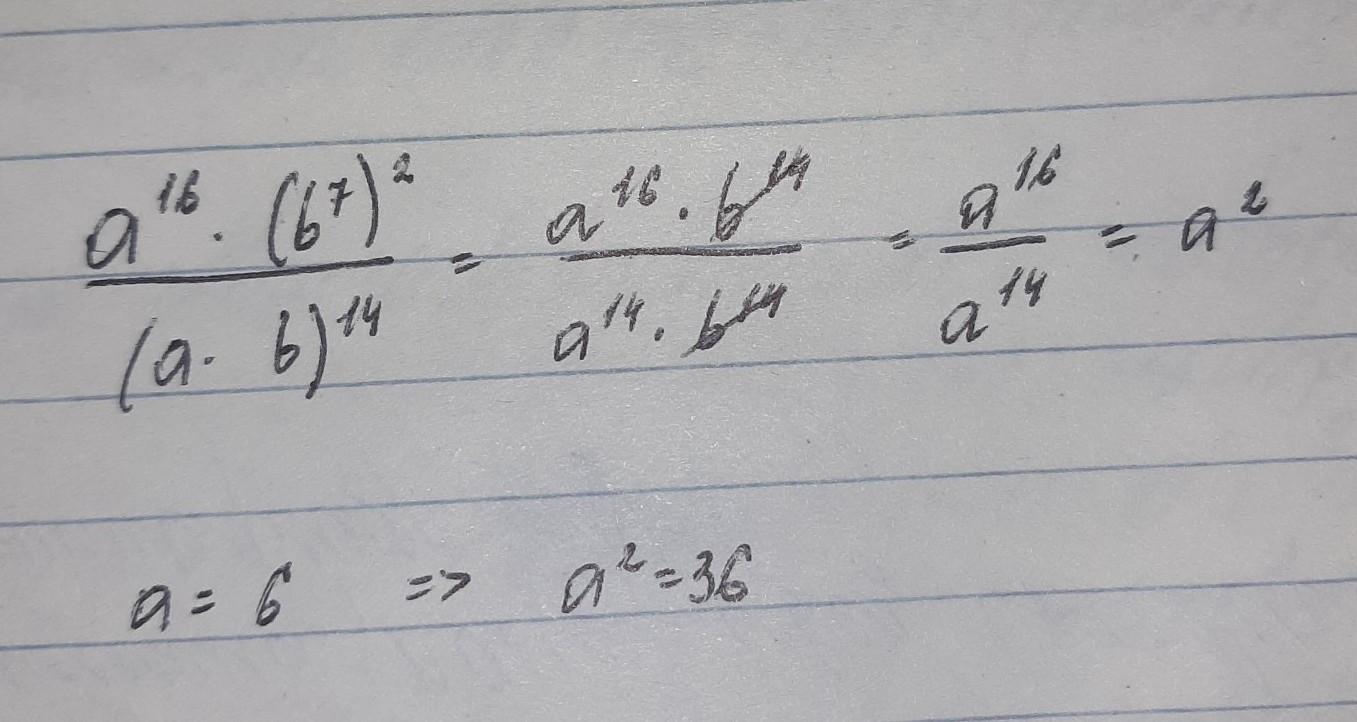 a^16 · (b^7)^2 / (a · b)^14 = a^16 · b^14 / a^14 · b^14 = a^16 / a^14 = a^2
a = 6 => a^2 = 36